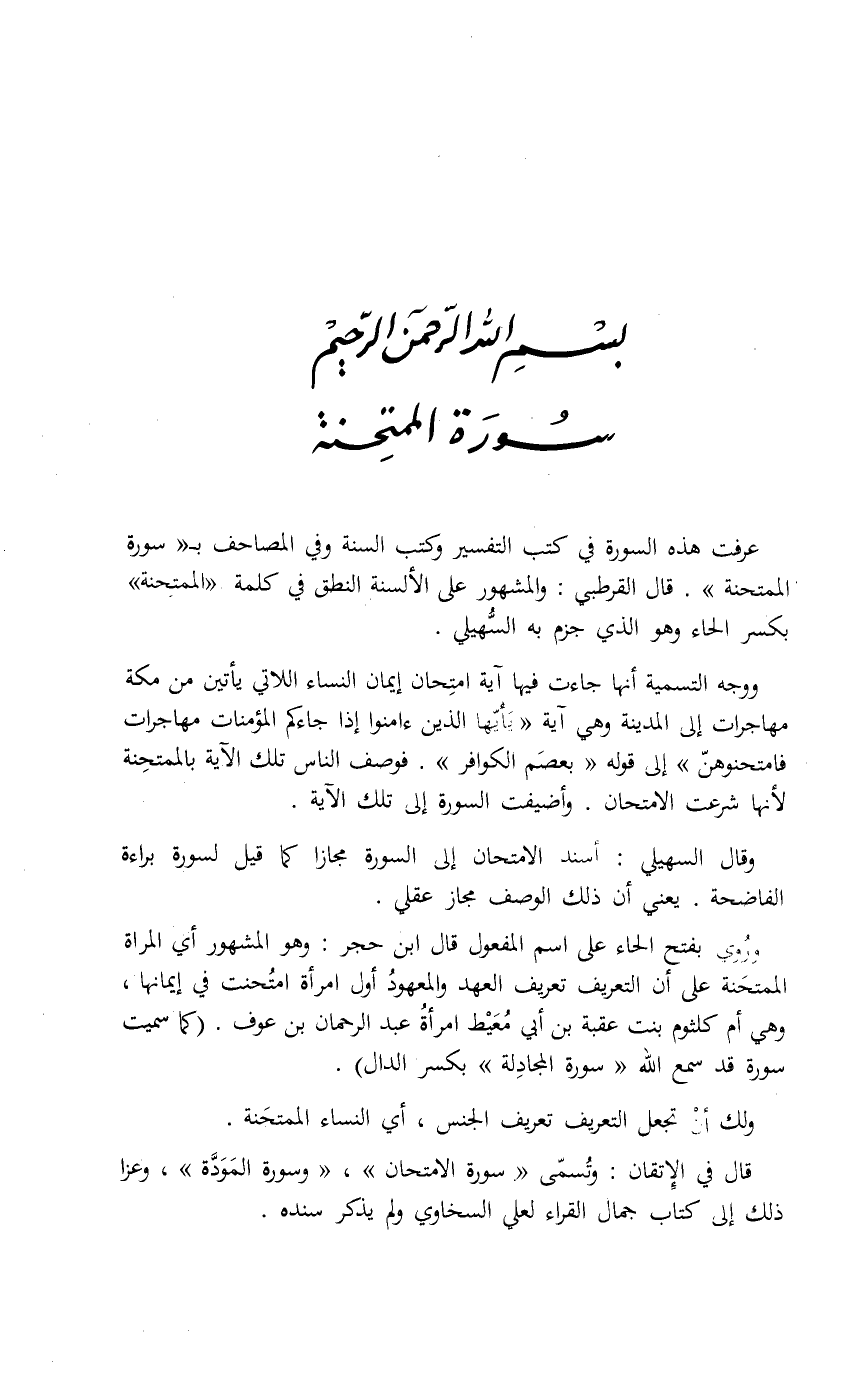 بسم الله الرحمن الرحيم
سُورَة الممتحِنة
عرفت هذه السورة في كتب التفسير وكتب السنة وفي المصاحف بـ« سورة
الممتحنة » . قال القرطبي : والمشهور على الألسنة النطق في كلمة «الممتحِنة»
بكسر الحاء وهو الذي جزم به السُّهيلي .
ووجه التسمية أنها جاءت فيها آية امتِحان إيمان النساء اللاتي يأتين من مكة
مهاجرات إلى المدينة وهي آية « يَأيّها الذين ءامنوا إذا جاءكم المؤمنات مهاجرات
فامتحنوهنّ » إلى قوله « بعصَم الكوافر » . فوصف الناس تلك الآية بالممتحِنة
لأنها شرعت الامتحان . وأضيفت السورة إلى تلك الآية .
وقال السهيلي : أسند الامتحان إلى السورة مجازا كما قيل لسورة براءة
الفاضحة . يعني أن ذلك الوصف مجاز عقلي .
ورُوي بفتح الحاء على اسم المفعول قال ابن حجر : وهو المشهور أي المراة
الممتحَنة على أن التعريف تعريف العهد والمعهودُ أول امرأة امتُحنت في إيمانها ،
وهي أم كلثوم بنت عقبة بن أبي مُعَيْط امرأةُ عبد الرحمان بن عوف . (كما سميت
سورة قد سمع الله « سورة المجادِلة » بكسر الدال) .
ولك أنْ تجعل التعريف تعريف الجنس ، أي النساء الممتحَنة .
قال في الإِتقان : وتُسمّى « سورة الامتحان » ، « وسورة المَوَدَّة » ، وعزا
ذلك إلى كتاب جمال القراء لعلي السخاوي ولم يذكر سنده .